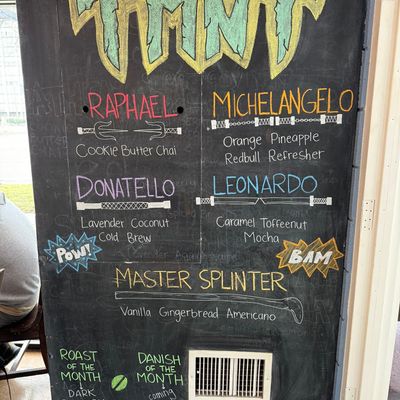 TMNT
RAPHAEL
Cookie Butter Chai
MICHELANGELO
Orange Pineapple
Redbull Refresher
DONATELLO
Lavender Coconut
Cold Brew
LEONARDO
Caramel Toffeenut
Mocha
POW!
BAM!
MASTER SPLINTER
Vanilla Gingerbread Americano
ROAST
OF THE
MONTH
DARK
DANISH
OF THE
MONTH
coming